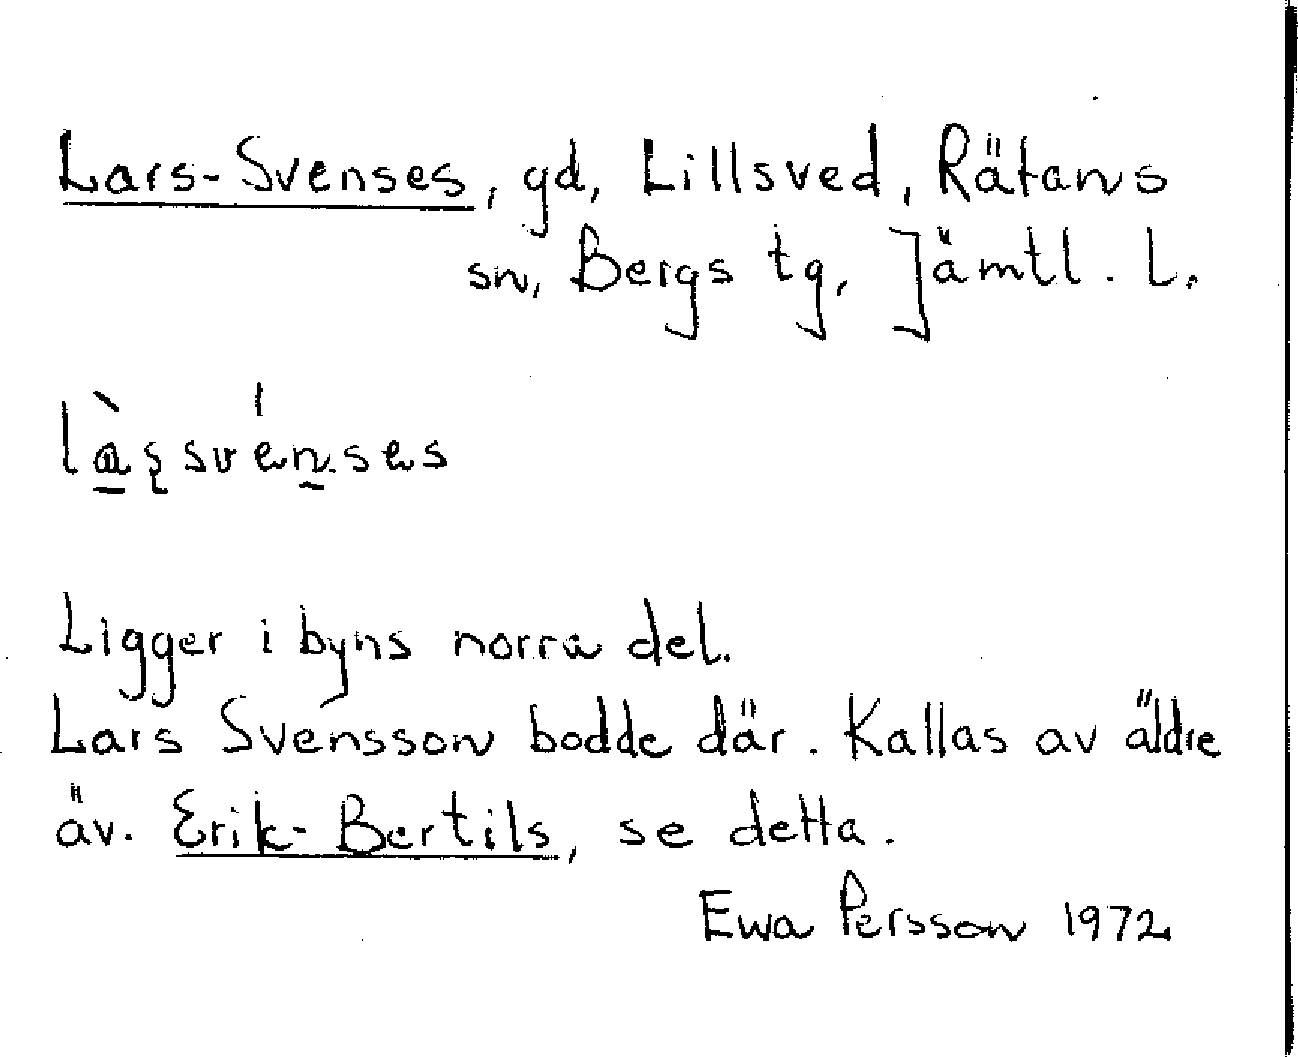 Lars-Svenses, gd, Lillsved, Rätans
sn, Bergs tg, Jämtl. L.
là̱ʂsvén̠ses
Ligger i byns norra del.
Lars Svensson bodde där. Kallas av äldre
äv. Erik-Bertils, se detta.
Ewa Persson 1972